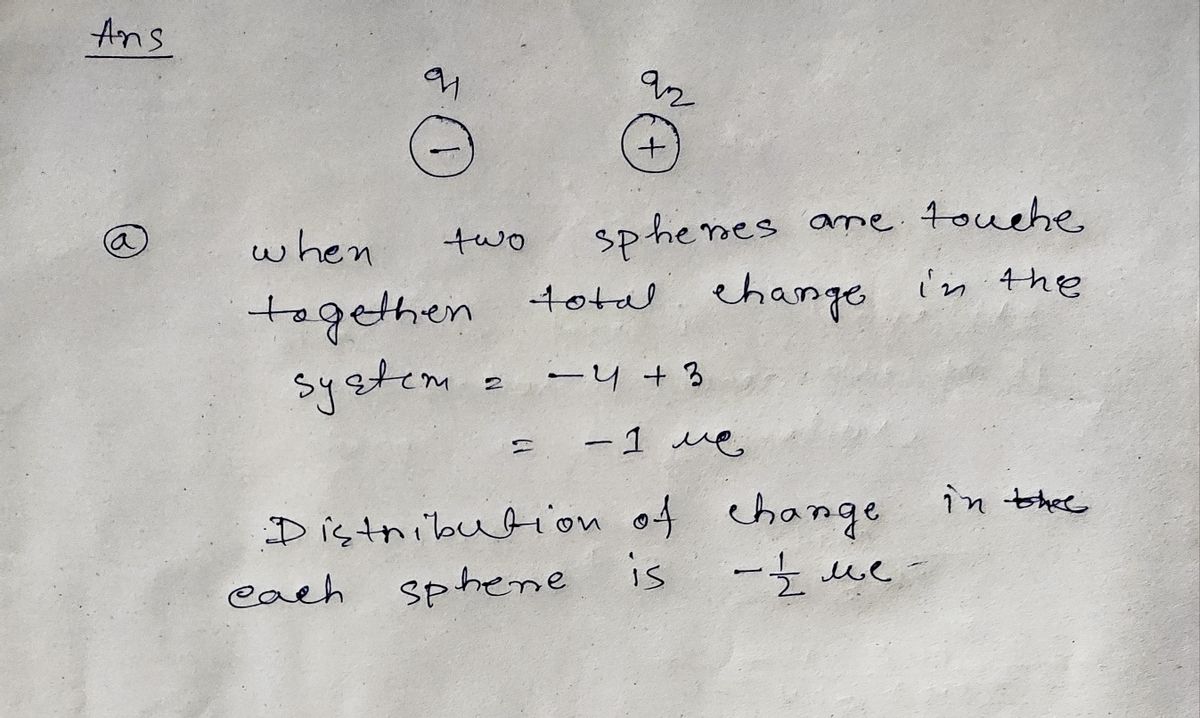 Ans
q1 q2
- +
(a) when two spheres are touche
together total charge in the
system = -4 + 3
= -1 μc
Distribution of charge in the
each sphere is -1/2 μc